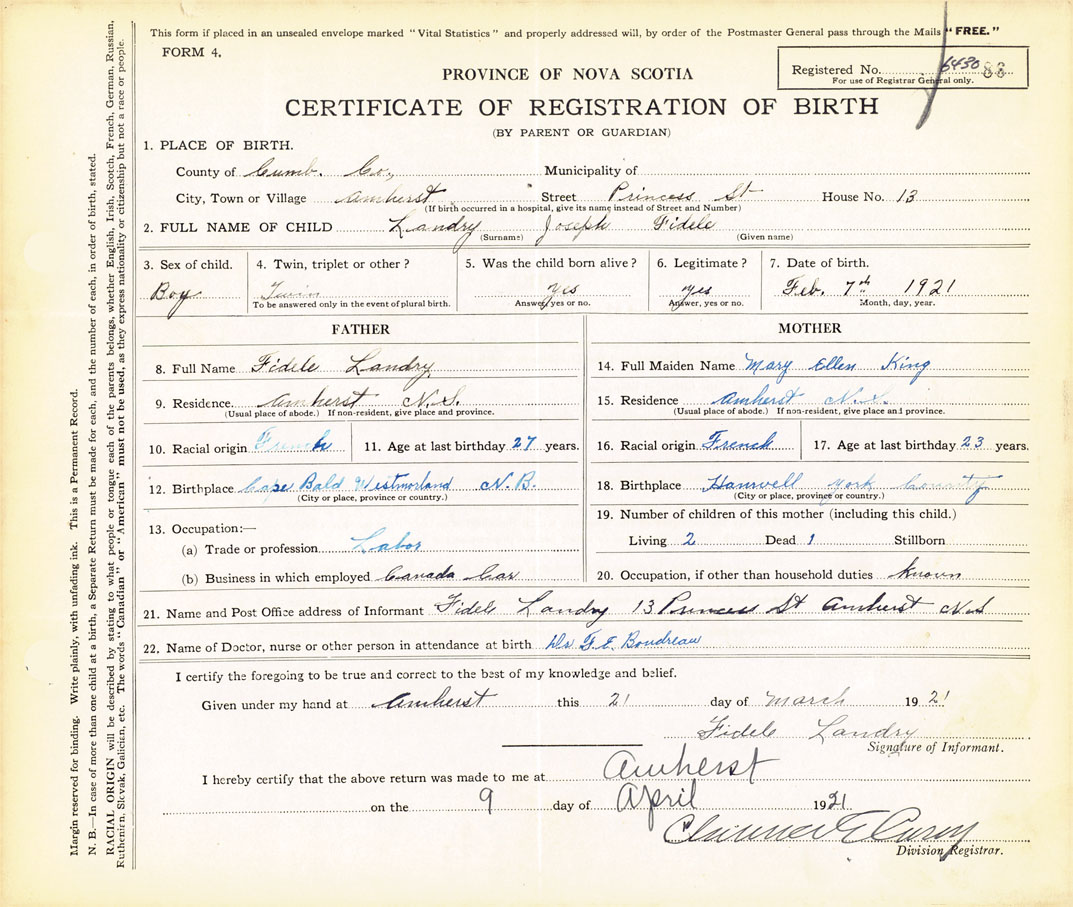 This form if placed in an unsealed envelope marked "Vital Statistics" and properly addressed will, by order of the Postmaster General pass through the Mails "FREE."
FORM 4.
PROVINCE OF NOVA SCOTIA
Registered No. 6430 86
For use of Registrar General only.
CERTIFICATE OF REGISTRATION OF BIRTH
(BY PARENT OR GUARDIAN)
1. PLACE OF BIRTH.
County of Cumb. Co., Municipality of
City, Town or Village Amherst Street Princess St House No. 13
(If birth occurred in a hospital, give its name instead of Street and Number)
2. FULL NAME OF CHILD Landry Joseph Fidele
(Surname) (Given name)
3. Sex of child. 4. Twin, triplet or other? 5. Was the child born alive? 6. Legitimate? 7. Date of birth.
Boy Twin yes yes Feb. 7th 1921
To be answered only in the event of plural birth. Answer, yes or no. Answer, yes or no. Month, day, year.
FATHER MOTHER
8. Full Name Fidele Landry 14. Full Maiden Name Mary Ellen King
9. Residence. Amherst N.S. 15. Residence Amherst N.S.
(Usual place of abode.) If non-resident, give place and province. (Usual place of abode.) If non-resident, give place and province.
10. Racial origin French 11. Age at last birthday 27 years. 16. Racial origin French 17. Age at last birthday 23 years.
12. Birthplace Cape Bald Westmorland N.B. 18. Birthplace Hanwell York County
(City or place, province or country.) (City or place, province or country.)
13. Occupation:— 19. Number of children of this mother (including this child.)
(a) Trade or profession Labor Living 2 Dead 1 Stillborn
(b) Business in which employed Canada Car 20. Occupation, if other than household duties known
21. Name and Post Office address of Informant Fidele Landry 13 Princess St Amherst N.S
22. Name of Doctor, nurse or other person in attendance at birth Dr F. E. Boudreau
I certify the foregoing to be true and correct to the best of my knowledge and belief.
Given under my hand at Amherst this 21 day of March 1921
Fidele Landry
Signature of Informant.
I hereby certify that the above return was made to me at Amherst
on the 9 day of April 1921
Division Registrar.
Margin reserved for binding. Write plainly, with unfading ink. This is a Permanent Record.
N. B.—In case of more than one child at a birth, a Separate Return must be made for each, and the number of each, in order of birth, stated.
RACIAL ORIGIN will be described by stating to what people or tongue each of the parents belongs, whether English, Irish, Scotch, French, German, Russian,
Ruthenian, Slovak, Galician, etc. The words "Canadian" or "American" must not be used, as they express nationality or citizenship but not a race or people.